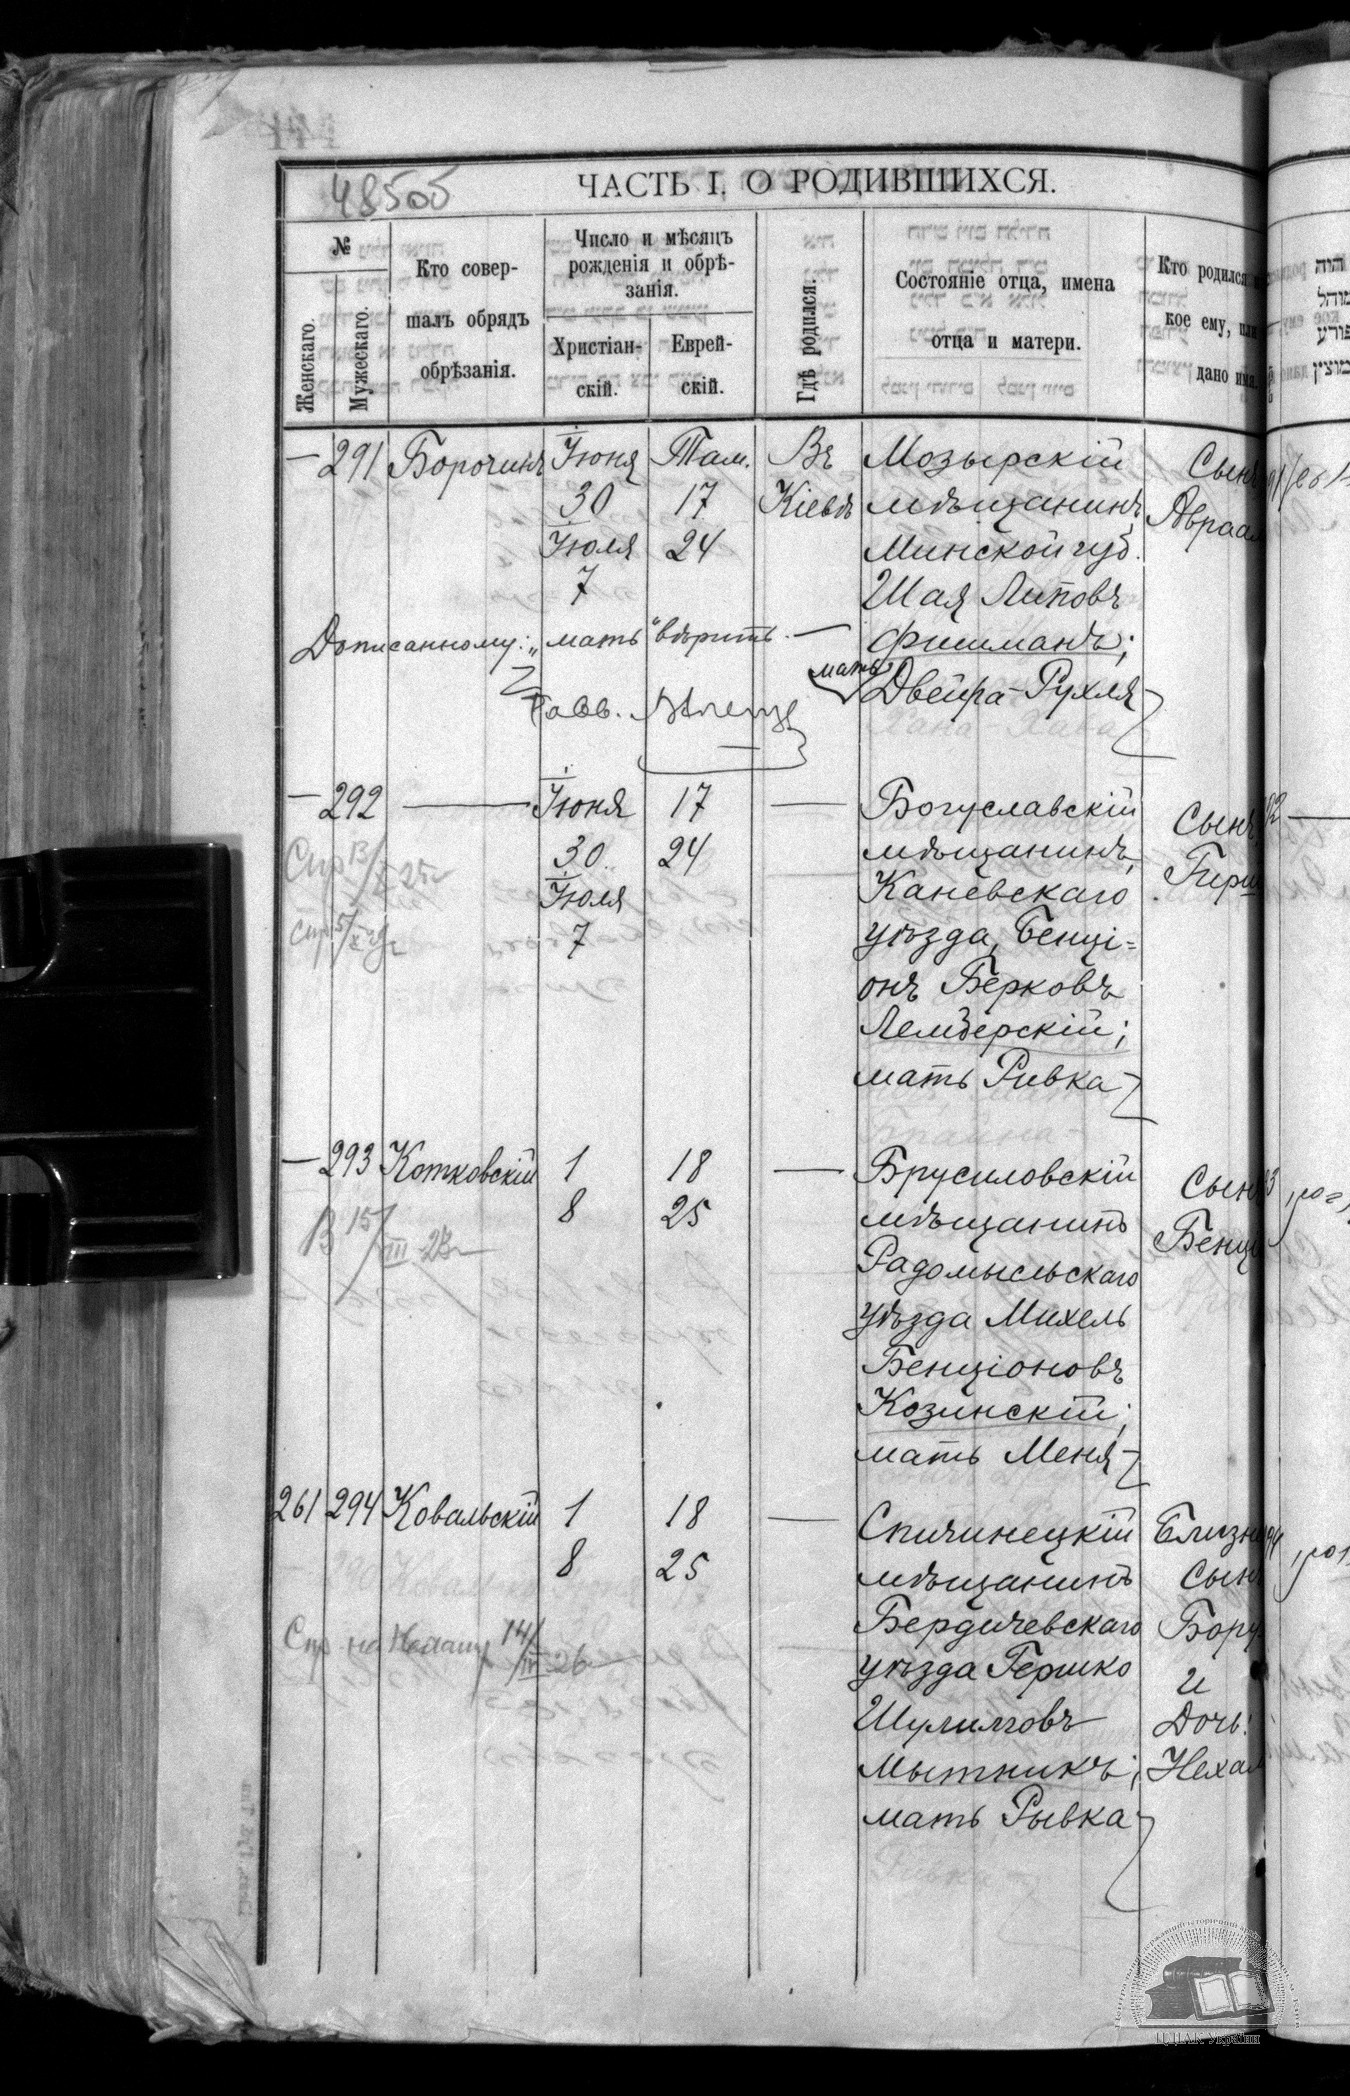 48505
ЧАСТЬ I, О РОДИВШИХСЯ.
№
Женскаго.
Мужескаго.
Кто совер-
шалъ обрядъ
обрѣзанія.
Число и мѣсяцъ
рожденія и обрѣ-
занія.
Христіан-
скій.
Еврей-
скій.
Гдѣ родился.
Состояніе отца, имена
отца и матери.
Кто родился
кое ему, или
дано имя.
— 291 Борочинъ Іюня Там. Въ Мозырскій Сынъ
30 17 Кіевѣ мѣщанинъ, Авраам
Іюля 24 Минской губ.
7 Шая Липовъ
Дописанному: „мать" вѣрить. — Фишманъ;
мать Двейра-Рухля
Равв.
— 292 — Іюня 17 — Богуславскій Сынъ
30 24 мѣщанинъ, Герш
Іюля Каневскаго
7 уѣзда, Бенці=
онъ Берковъ
Лемберскій;
мать Ривка
Спр 13/X 25г
спр 5/X 29г
— 293 Котковскій 1 18 — Брусиловскій Сынъ
8 25 мѣщанинъ Бенці
В 15/III 28г Радомысльскаго
уѣзда Михель
Бенціоновъ
Козинскій;
мать Меня
261 294 Ковальскій 1 18 — Спичинецкій Близн
8 25 мѣщанинъ Сынъ
Бердичевскаго Бору
уѣзда Гершко и
Шулимовъ Дочь:
Мытникъ; Нехам
мать Рывка
Спр на Нехаму 14/IV 26
ЦДІАК України